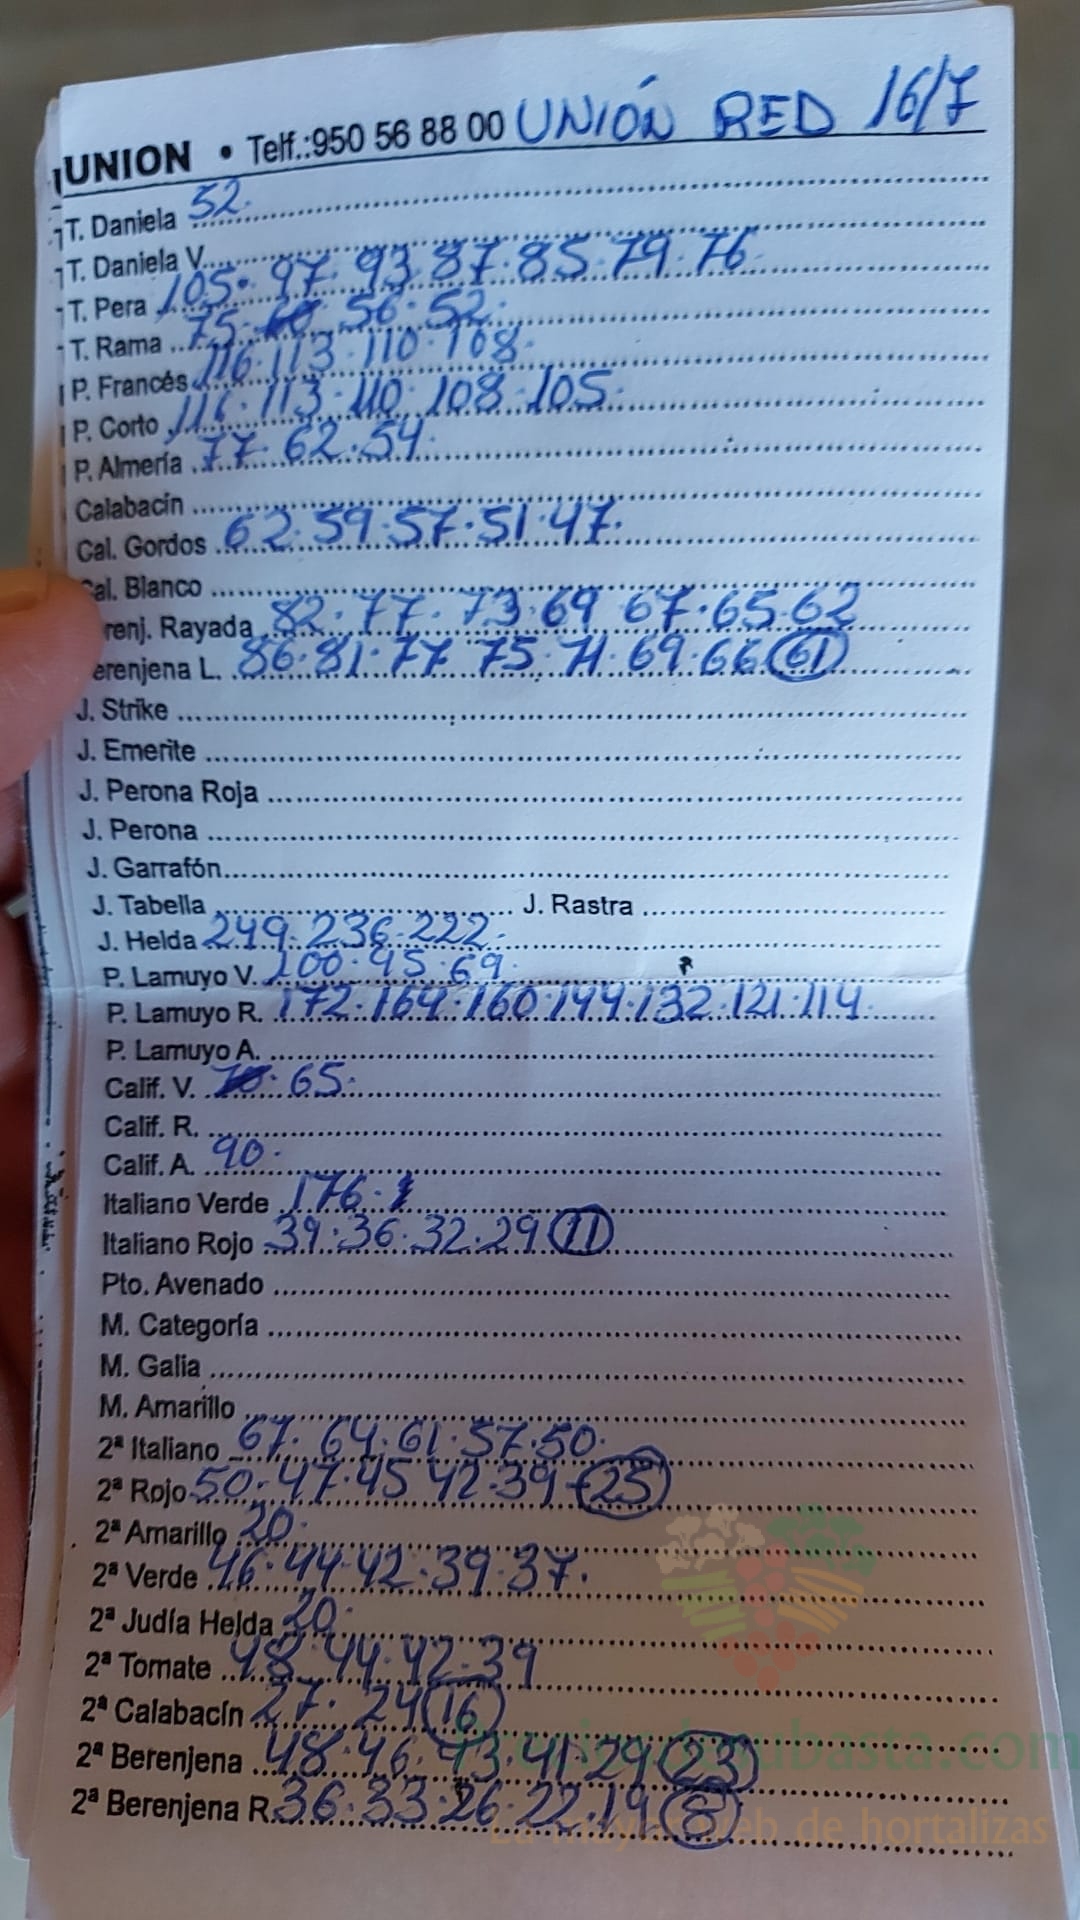 UNION • Telf.:950 56 88 00 UNIÓN RED 16/7
T. Daniela 52.
T. Daniela V.
T. Pera 105. 97. 93 87. 85. 79. 76
T. Rama 75. 56. 52.
P. Francés 116. 113. 110. 108.
P. Corto 116. 113. 110. 108. 105.
P. Almería 77. 62. 54.
Calabacín
Cal. Gordos 62. 59. 57. 51. 47.
Cal. Blanco
renj. Rayada 82. 77. 73. 69 67. 65. 62
erenjena L. 86. 81. 77 75. 71. 69. 66 61
J. Strike
J. Emerite
J. Perona Roja
J. Perona
J. Garrafón
J. Tabella J. Rastra
J. Helda 249. 236. 222.
P. Lamuyo V. 100. 95. 69.
P. Lamuyo R. 172. 164. 160. 144. 132. 121. 114.
P. Lamuyo A.
Calif. V. 65.
Calif. R.
Calif. A. 90.
Italiano Verde 176.
Italiano Rojo 39. 36. 32. 29 11
Pto. Avenado
M. Categoría
M. Galia
M. Amarillo
2ª Italiano 67. 64. 61. 57. 50.
2ª Rojo 50. 47. 45 42. 39 25
2ª Amarillo 20.
2ª Verde 46. 44. 42. 39. 37.
2ª Judía Helda 20.
2ª Tomate 48. 44. 42. 39
2ª Calabacín 27. 24 16
2ª Berenjena 48. 46. 43. 41. 29 23
2ª Berenjena R. 36. 33. 26. 22. 19 8
de hortalizas